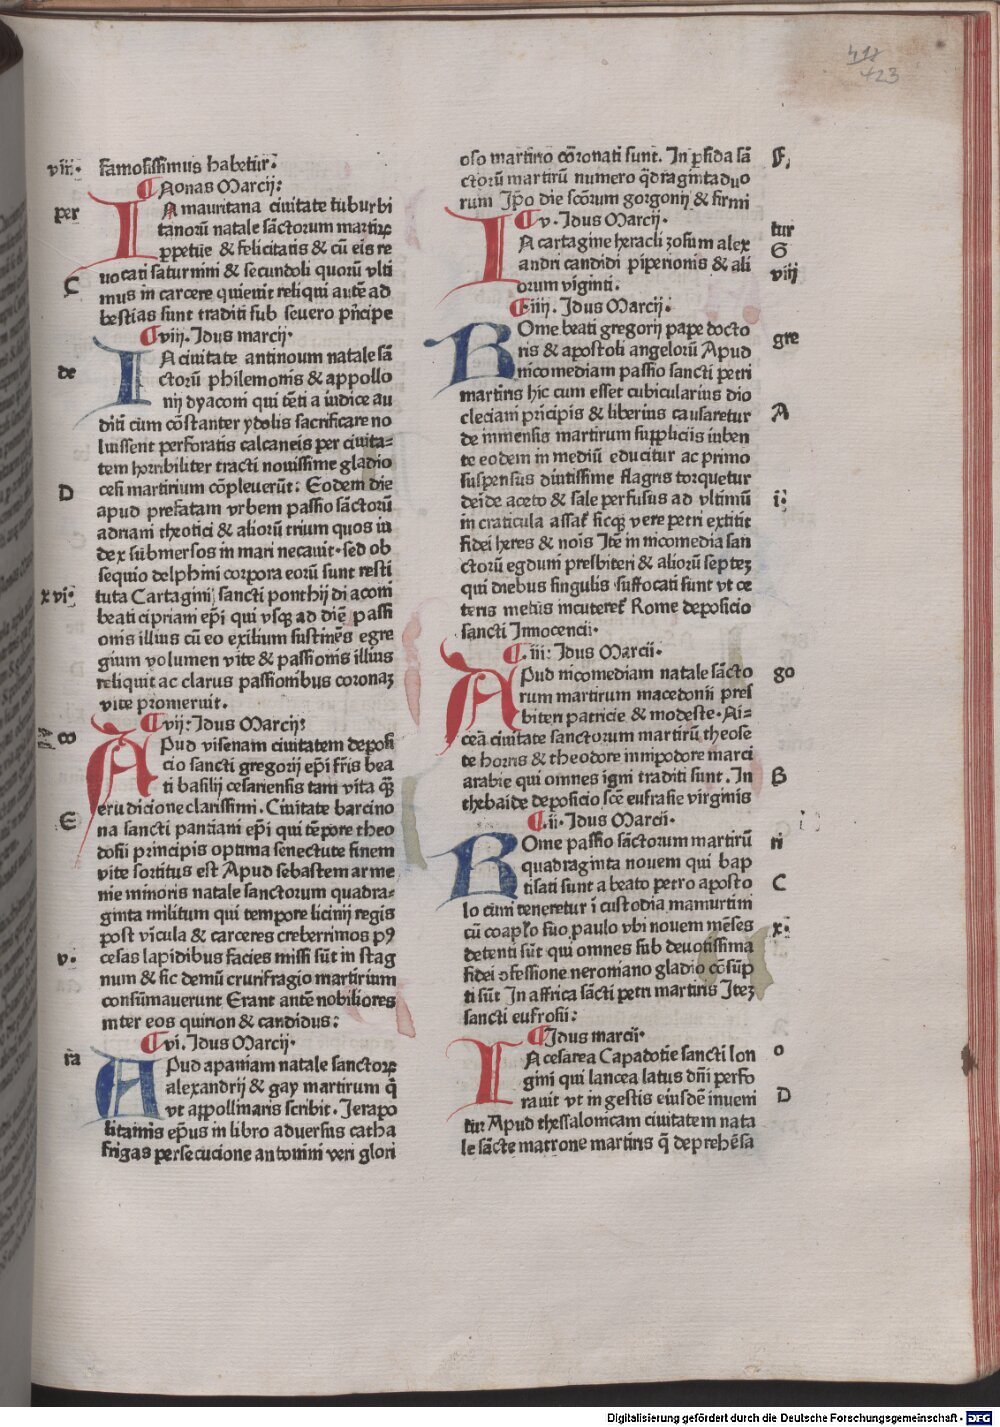 418
423
viii· famosissimus habetur·
Nonas Marcij:
per IN mauritana ciuitate tuburbi
tanorū natale sāctorum martirꝝ
ꝑpetue & felicitatis & cū eis re
C uocati saturnini & secundoli quorū vlti
mus in carcere quieuit reliqui autē ad
bestias sunt traditi sub seuero pricipe
viii· Idus marcij·
de IN ciuitate antinoum natale sā
ctorū philemonis & appollo
nij dyaconi qui tēti a iudice au
diti cum cōstanter ydolis sacrificare no
luissent perforatis calcaneis per ciuita-
tem horribiliter tracti nouissime gladio
D cesi martirium cōpleuerūt: Eodem die
apud prefatam vrbem passio sāctorū
adriani theotici & aliorū trium quos iu
dex submersos in mari necauit· sed ob
sequio delphini corpora eorū sunt resti
xvi· tuta Cartaginij sancti ponthij diaconi
beati cipriani ep̄i qui vsqꝫ ad diē passi
onis illius cū eo exilium sustinēs egre
gium volumen vite & passionis illius
reliquit ac clarus passionibus coronaꝫ
vite promeruit.
vij: Idus Marcij:
APud visenam ciuitatem deposi
cio sancti gregorij ep̄i fr̄is bea
ti basilij cesariensis tam vita qꝫ
E erudicione clarissimi. Ciuitate barcino
na sancti panciani ep̄i qui tēpore theo
dosii principis optima senectute finem
vite sortitus est Apud sebastem arme
nie minoris natale sanctorum quadra-
ginta militum qui tempore licinij regis
post vīcula & carceres creberrimos pꝯ
v· cesas lapidibus facies missi sūt in stag
num & sic demū crurifragio martirium
consūmauerunt Erant autē nobiliores
inter eos quirion & candidus:
vi. Idus Marcij·
ra APud apaniam natale sanctorꝝ
alexandrij & gay martirum q̄
vt appollinaris scribit. Ierapo
litamis ep̄us in libro aduersus catha
frigas persecucione antonini veri glori
oso martirio cōronati sunt. In ꝑsida sā F,
ctorū martirū numero q̄dragintaduo
rum Ip̄o die scōrum gorgonij & firmi
v· Idus Marcij· tur
IN cartagine heracli zosum alex G
andri candidi piperionis & ali viij
orum viginti:
iiij. Idus Marcij:
ROme beati gregorij pape docto gre
ris & apostoli angelorū Apud
nicomediam passio sancti petri
martiris hic cum esset cubicularius dio
cleciani pricipis & liberius causaretur A
de inmensis martirum suppliciis iuben
te eodem in mediū educitur ac primo
suspensus diutissime flagris torquetur
deīde aceto & sale perfusus ad vltimū i:
in craticula assat̄ sicqꝫ vere petri extitit
fidei heres & nois Itē in nicomedia san
ctorū egduni presbiteri & aliorū septeꝫ
qui diebus singulis suffocati sunt vt ce
teris metus incuteret̄ Rome deposicio
sancti Innocencii·
iii: Idus Marcij·
APud nicomediam natale sācto go
rum martirum macedonii pres
biteri patricie & modeste· Ni-
ceā ciuitate sanctorum martirū theose
te horris & theodore innipodore marci
arabie qui omnes igni traditi sunt. In B
thebaide deposicio scē eufrasie virginis
.ii· Idus Marcij·
ROme passio sāctorum martirū ri
quadraginta nouem qui bap
tisati sunt a beato petro aposto C
lo cum teneretur ī custodia mamurtini
cū coapl̄o suo paulo vbi nouem mēses x:
detenti sūt qui omnes sub deuotissima
fidei ↄfessione neroniano gladio cōsūp
ti sūt In affrica sācti petri martiris Iteꝫ
sancti eufrosii:
Idus marcij·
IN cesarea Capadotie sancti lon o
gini qui lancea latus dn̄i perfo
rauit vt in gestis eiusdē inueni D
tur Apud thessalonicam ciuitatem nata
le sācte matrone martiris q̄ deprehēsa
Digitalisierung gefördert durch die Deutsche Forschungsgemeinschaft - DFG